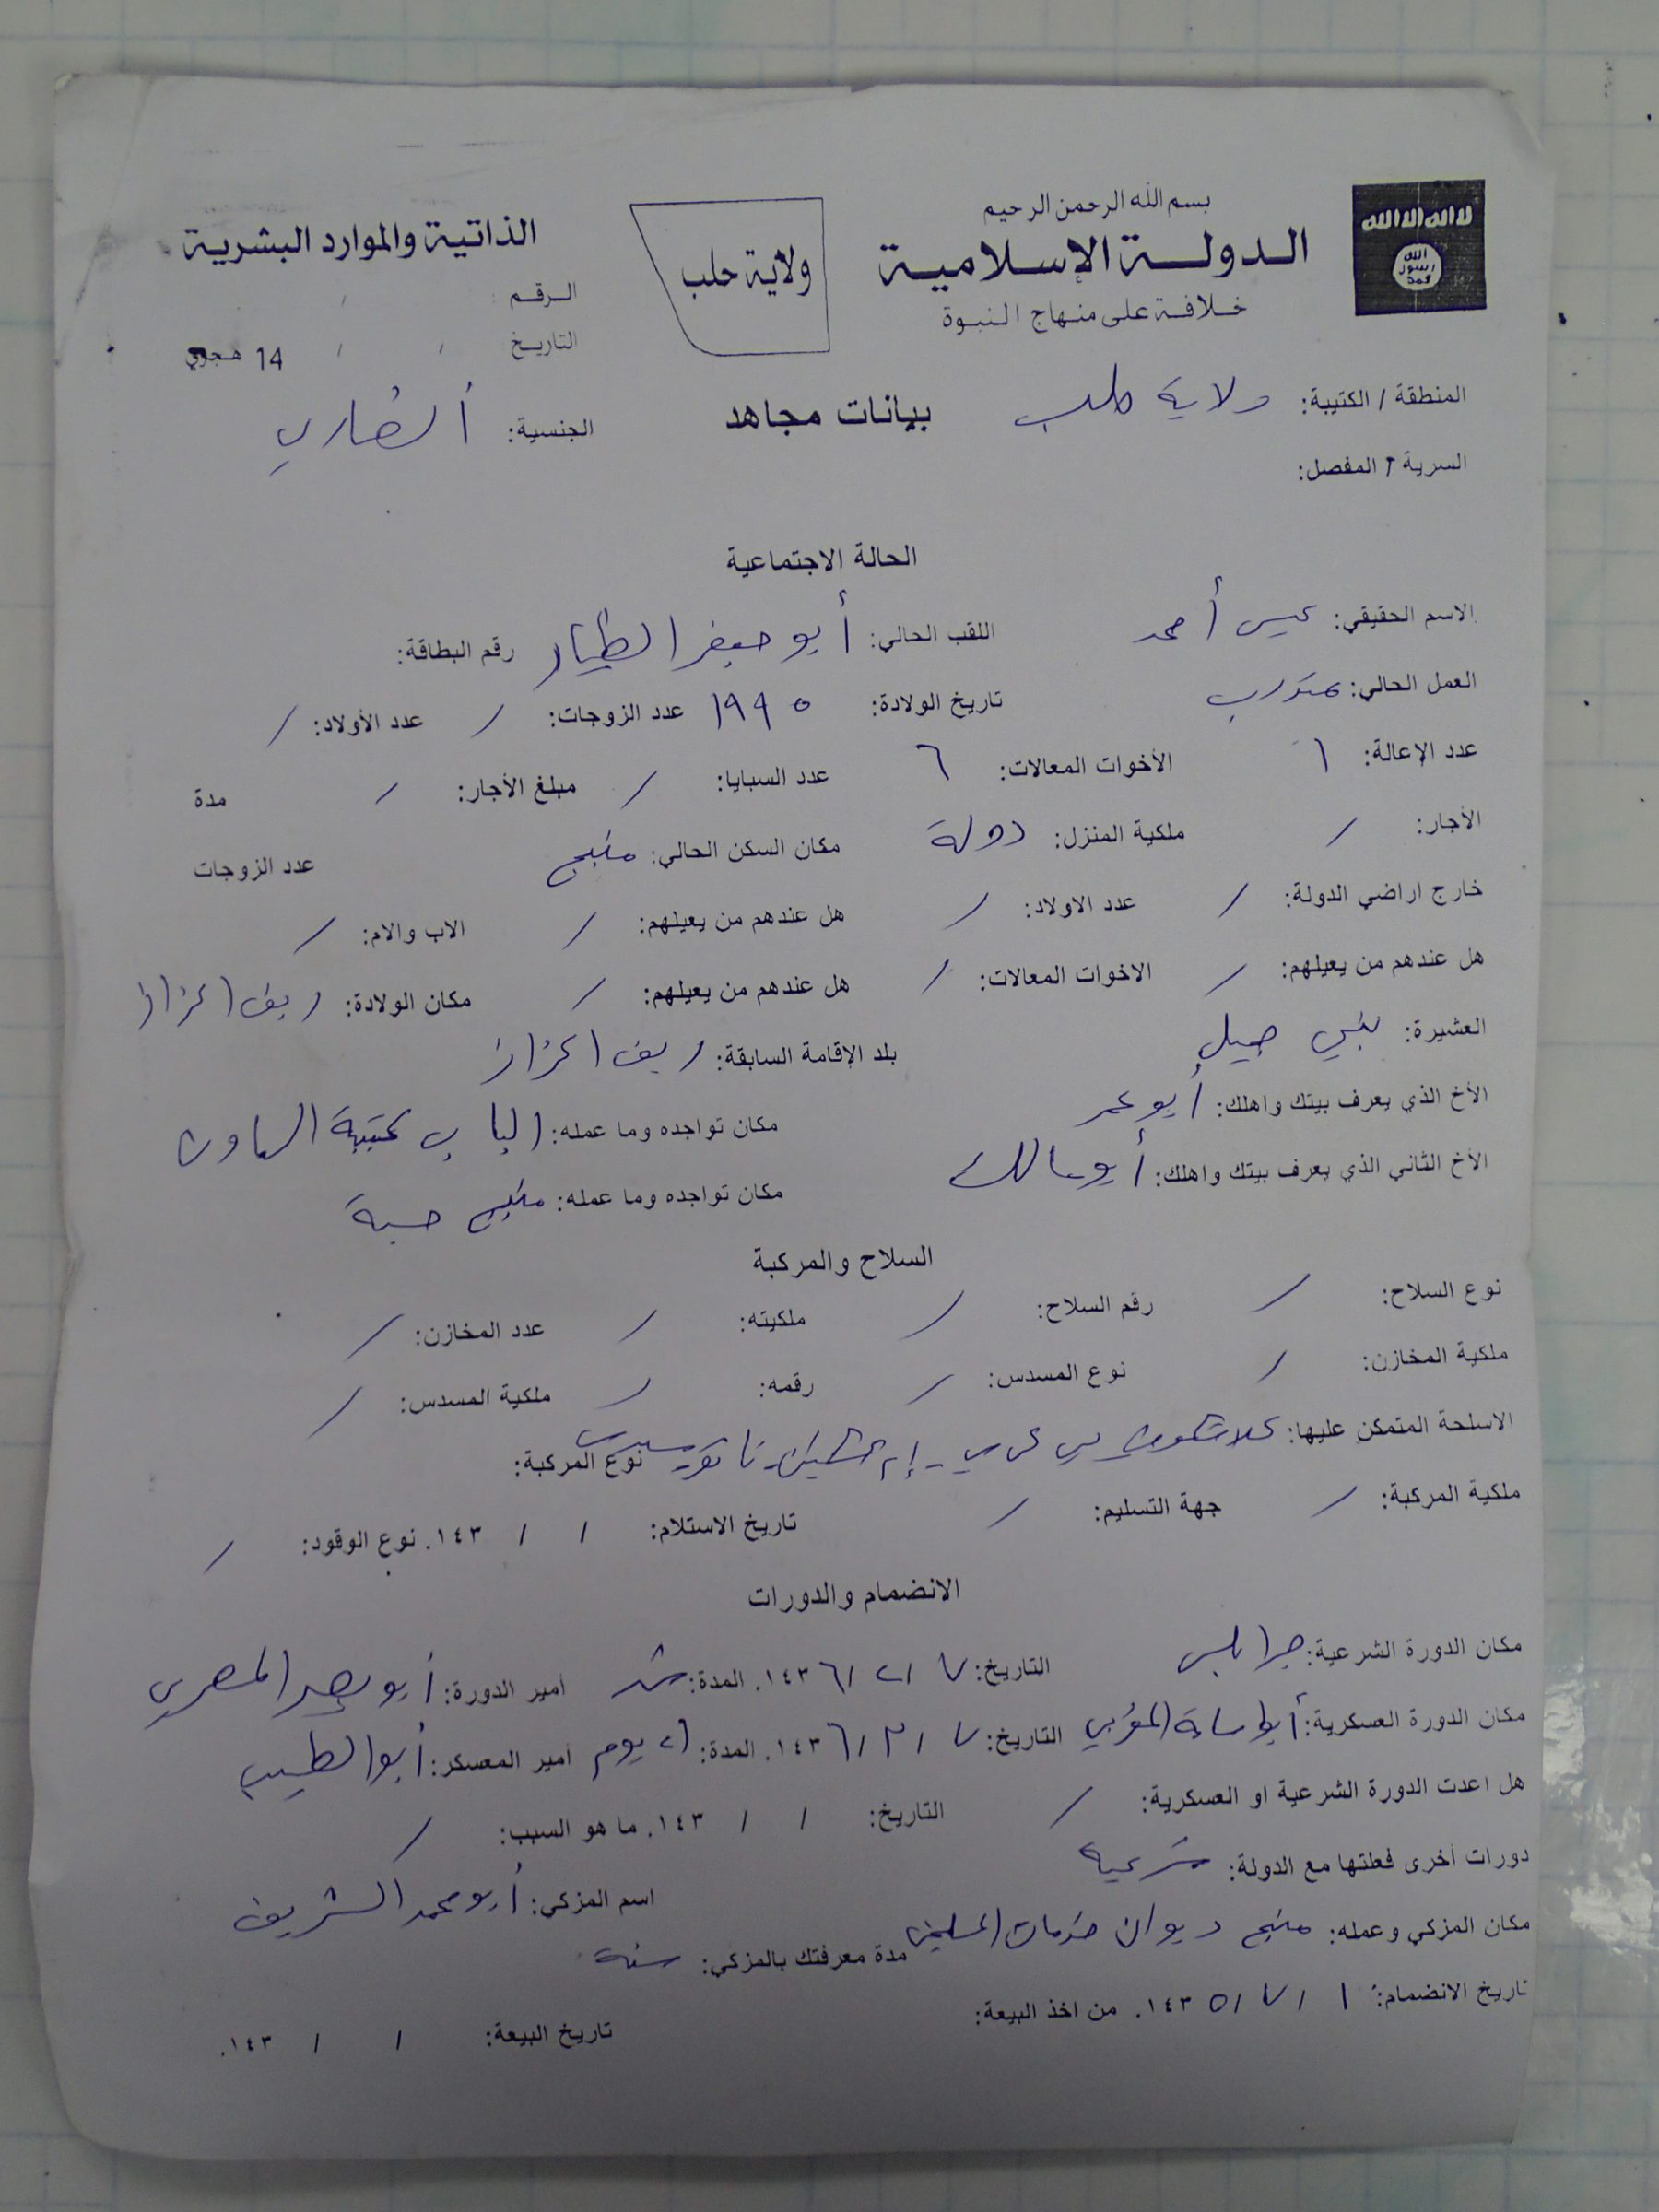 لا اله الا الله
الله
رسول
محمد
بسم الله الرحمن الرحيم
الدولة الإسلامية
خلافة على منهاج النبوة
ولاية حلب
الذاتية والموارد البشرية
الرقم
التاريخ / / 14 هجري
المنطقة / الكتيبة: ولاية حلب
بيانات مجاهد
الجنسية: أنصاري
السرية / المفصل:
الحالة الاجتماعية
الاسم الحقيقي: عيسى أحمد اللقب الحالي: أبو جعفر الطيار رقم البطاقة:
العمل الحالي: متدرب تاريخ الولادة: ١٩٩٥ عدد الزوجات: / عدد الأولاد: /
عدد الإعالة: ٦ الأخوات المعالات: ٦ عدد السبايا: / مبلغ الأجار: / مدة
الأجار: / ملكية المنزل: دولة مكان السكن الحالي: منبج عدد الزوجات
خارج اراضي الدولة: / عدد الاولاد: / هل عندهم من يعيلهم: / الاب والام: /
هل عندهم من يعيلهم: / الاخوات المعالات: / هل عندهم من يعيلهم: / مكان الولادة: ريف اعزاز
العشيرة: بني جميل بلد الإقامة السابقة: ريف اعزاز
الأخ الذي يعرف بيتك واهلك: أبو عمر مكان تواجده وما عمله: الباب كتيبة الهاون
الأخ الثاني الذي يعرف بيتك واهلك: أبو مالك مكان تواجده وما عمله: منبج حسبة
السلاح والمركبة
نوع السلاح: / رقم السلاح: / ملكيته: / عدد المخازن: /
ملكية المخازن: / نوع المسدس: / رقمه: / ملكية المسدس: /
الاسلحة المتمكن عليها: كلاشنكوف بي كي سي - إم نوع المركبة:
ملكية المركبة: / جهة التسليم: / تاريخ الاستلام: / / ١٤٣. نوع الوقود: /
الانضمام والدورات
مكان الدورة الشرعية: جرابلس التاريخ: ٧ / ٢ / ١٤٣٦. المدة: شهر أمير الدورة: المصري
مكان الدورة العسكرية: أبو اسامة المغربي التاريخ: ٧ / ٣ / ١٤٣٦. المدة: يوم أمير المعسكر: أبو الطيب
هل اعدت الدورة الشرعية او العسكرية: / التاريخ: / / ١٤٣. ما هو السبب: /
دورات أخرى فعلتها مع الدولة: شرعية اسم المزكي: أبو محمد الشريف
مكان المزكي وعمله: منبج ديوان خدمات المسلمين مدة معرفتك بالمزكي: سنة
تاريخ الانضمام: ١ / ٧ / ١٤٣٥. من اخذ البيعة:
تاريخ البيعة: / / ١٤٣.